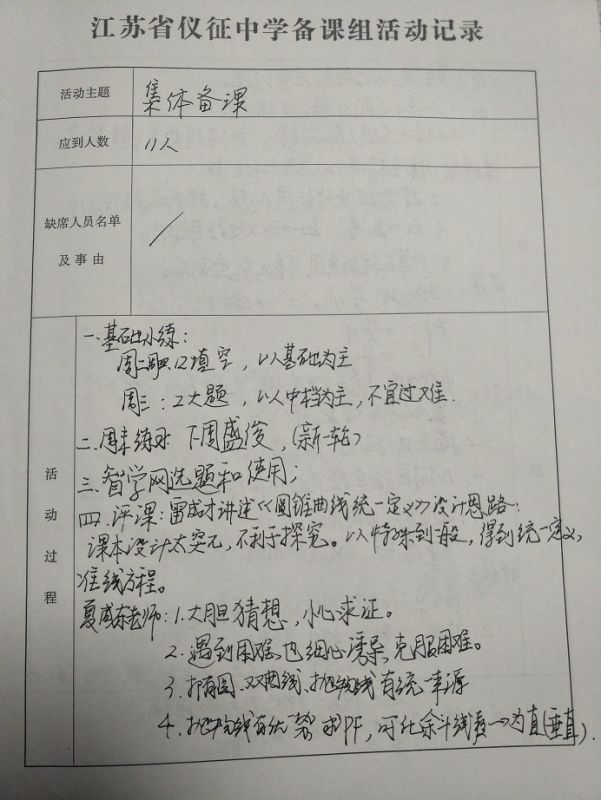 江苏省仪征中学备课组活动记录
活动主题 集体备课
应到人数 11人
缺席人员名单
及事由 /
活动过程
一.基础小练:
周二 12填空,以基础为主
周三:2大题,以中档为主,不宜过难.
二.周末练习 下周盛俊,(新一轮)
三.智学网选题和使用;
四.评课:雷成才讲述《圆锥曲线统一定义》设计思路:
课本设计太突兀,不利于探究。以特殊到一般,得到统一定义,
准线方程。
夏咸东老师:1.大胆猜想,小心求证。
2.遇到困难,也细心诱导,克服困难。
3.椭圆、双曲线、抛物线有统一来源
4.抛物线有优势 求PF,可化斜线段→为直(垂直).